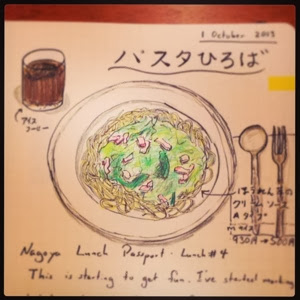 1 October 2013
パスタひろば
アイス
コーヒー
ほうれん草の
クリームソース
Aランチ
930円→500円
Nagoya Lunch Passport - Lunch #4
This is starting to get fun. I've started marking